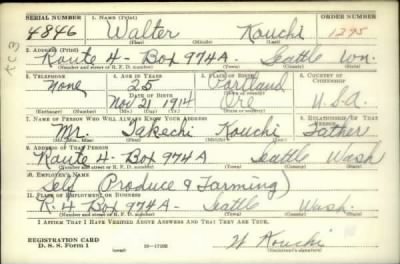 SERIAL NUMBER 1. NAME (Print) ORDER NUMBER
4846 Walter Kouchi 1295
(First) (Middle) (Last)
2. ADDRESS (Print)
Route 4- Box 974A- Seattle Wn.
(Number and street or R. F. D. number) (Town) (County) (State)
3. TELEPHONE 4. AGE IN YEARS 5. PLACE OF BIRTH 6. COUNTRY OF CITIZENSHIP
None 25 Portland
DATE OF BIRTH
Nov 21 1914 Ore U.S.A.
7. NAME OF PERSON WHO WILL ALWAYS KNOW YOUR ADDRESS 8. RELATIONSHIP OF THAT PERSON
Mr. Takechi Kouchi Father
9. ADDRESS OF THAT PERSON
Route 4- Box 974A Seattle Wash
(Number and street or R. F. D. number) (Town) (County) (State)
10. EMPLOYER'S NAME
Self (Produce & Farming)
11. PLACE OF EMPLOYMENT OR BUSINESS
R. 4- Box 974A- Seattle Wash.
(Number and street or R. F. D. number) (Town) (County) (State)
I AFFIRM THAT I HAVE VERIFIED ABOVE ANSWERS AND THAT THEY ARE TRUE.
REGISTRATION CARD
D. S. S. Form 1 (over) W Kouchi
(Registrant's signature)